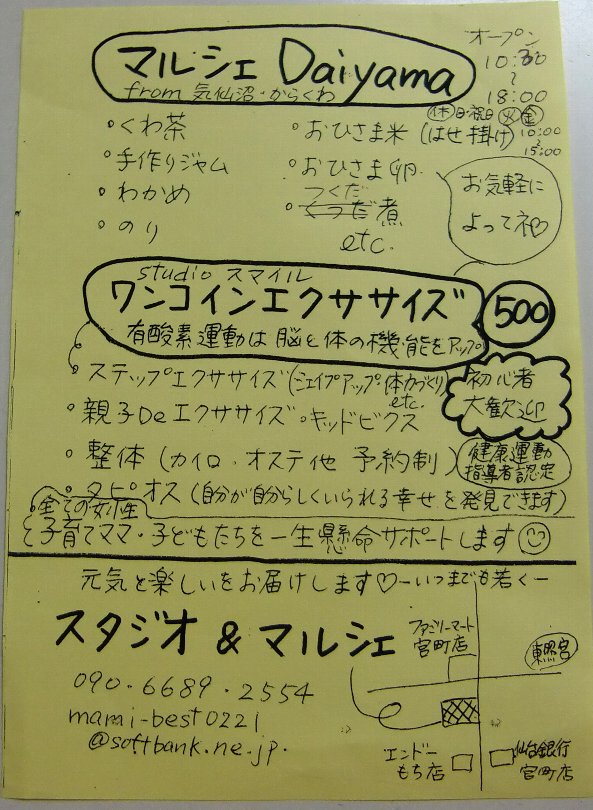 マルシェ Daiyama
from 気仙沼・からくわ
オープン
10:30
〜
18:00
㊡日・祝日 ㊋㊎
10:00
〜
15:00
・くわ茶
・手作りジャム
・わかめ
・のり
・おひさま米(はせ掛け)
・おひさま卵
つくだ
・煮
etc.
お気軽に
よってネ♡
studio スマイル
ワンコインエクササイズ
500
有酸素運動は脳と体の機能をアップ
・ステップエクササイズ(シェイプアップ体力づくり)
etc.
初心者
大歓迎
・親子Deエクササイズ・キッドビクス
・整体(カイロ・オステ他 予約制)
健康運動
指導者認定
・タピオス(自分が自分らしくいられる幸せを発見できます)
・全ての女性
と子育てママ・子どもたちを一生懸命サポートします
元気と楽しいをお届けします♡ーいつまでも若くー
スタジオ & マルシェ
090・6689・2554
mami-best0221
@softbank.ne.jp.
ファミリーマート
宮町店
東照宮
エンドー
もち店
仙台銀行
宮町店